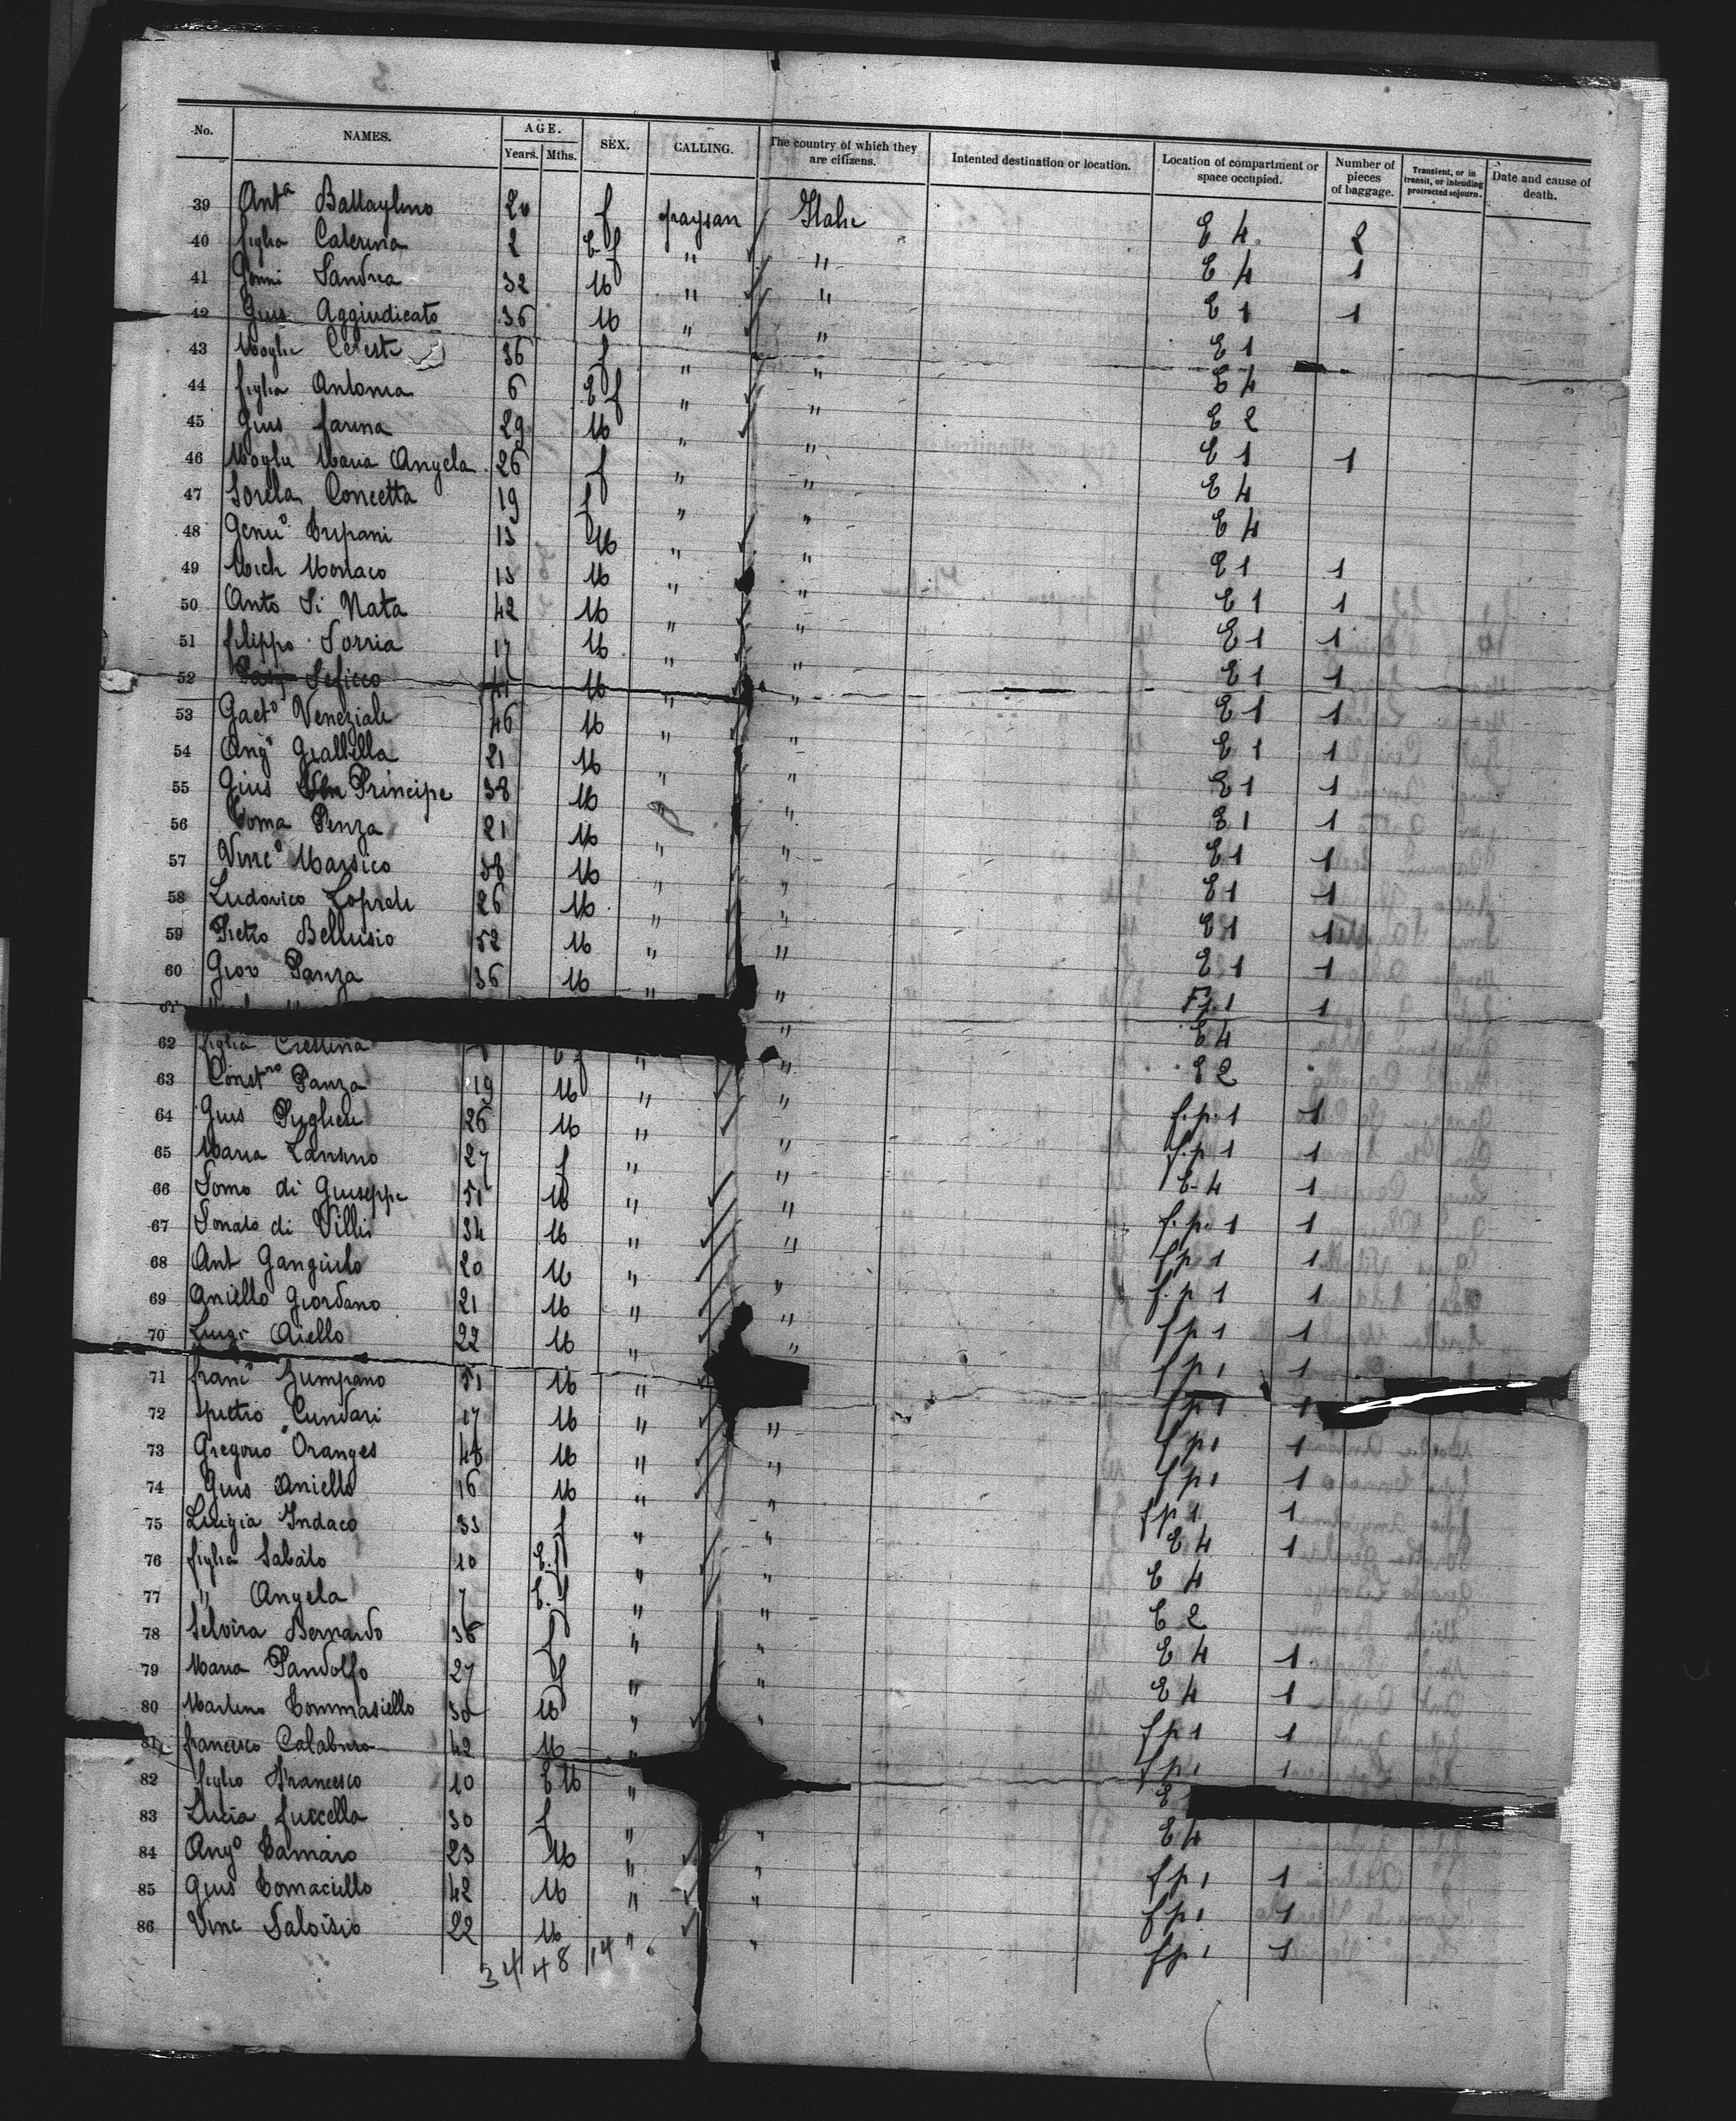 No. NAMES. AGE. Years. Mths. SEX. CALLING. The country of which they are citizens. Intented destination or location. Location of compartment or space occupied. Number of pieces of baggage. Transient, or in transit, or intending protracted sojourn. Date and cause of death.
39 Ant.a Battaglino 20 f paysan Italie E 4 2
40 figlia Caterina 2 E f " " E 4 1
41 Sandrea 32 M " " E 1 1
42 Gius Aggiudicato 36 M " " E 1
43 Moglie Celeste 36 f " " E 4
44 figlia Antonia 6 E f " " E 2
45 Gius farina 29 M " " E 1 1
46 Moglie Maria Angela 26 f " " E 4
47 Sorella Concetta 19 f " " E 4
48 Tripani 15 M " " E 1 1
49 Mich Monaco 15 M " " E 1 1
50 Anto Di Nata 42 M " " E 1 1
51 filippo Sorria 17 M " " E 1 1
52 41 M " " E 1 1
53 Gaet.o Veneziale 46 M " " E 1 1
54 Ang.o Grallella 21 M " " E 1 1
55 Gius Principe 38 M " " E 1 1
56 Toma Penza 21 M " " E 1 1
57 Vinc.o Marsico 38 M " " E 1 1
58 Ludovico 26 M " " E 1 1
59 Pietro Bellusio 52 M " " E 1 1
60 Giov Panza 36 M " " f.p. 1 1
61 " E 4
62 figlia E f " " E 2
63 Panza 19 M " " f.p. 1 1
64 Gius Pugliese 26 M " " f.p 1 1
65 Maria 27 f " " E 4 1
66 Somo di Giuseppe 51 M " " f.p. 1 1
67 Donato di Villis 34 M " " f p 1 1
68 Ant 20 M " " f. p 1 1
69 Aniello Giordano 21 M " " f p 1 1
70 Luigi Aiello 22 M " " f p 1 1
71 franc.o Zumpano 51 M " f p 1 1
72 pietro Cundari 17 M " " f p 1 1
73 Gregorio Oranges 48 M " " f p 1 1
74 Gius Aniello 16 M " " f p 1 1
75 Luigia Indaco 33 f " " E 4 1
76 figlia Sabato 10 E. f " " E 4
77 " Angela 7 E. f " " E 2
78 Selvira Bernardo 36 f " " E 4 1
79 Maria Pandolfo 27 f " " E 4 1
80 Martino Tommasiello 30 M " " f p 1 1
81 francesco Calabro 42 M " f p 1 1
82 figlio Francesco 10 E M " E
83 Lucia fuccella 30 f " " E 4
84 Ang.o Tamaro 23 M " " f p 1 1
85 Gius Tomaciello 42 M " " f p 1 1
86 Vinc Saloisio 22 M " " f p 1 1
34 48 14